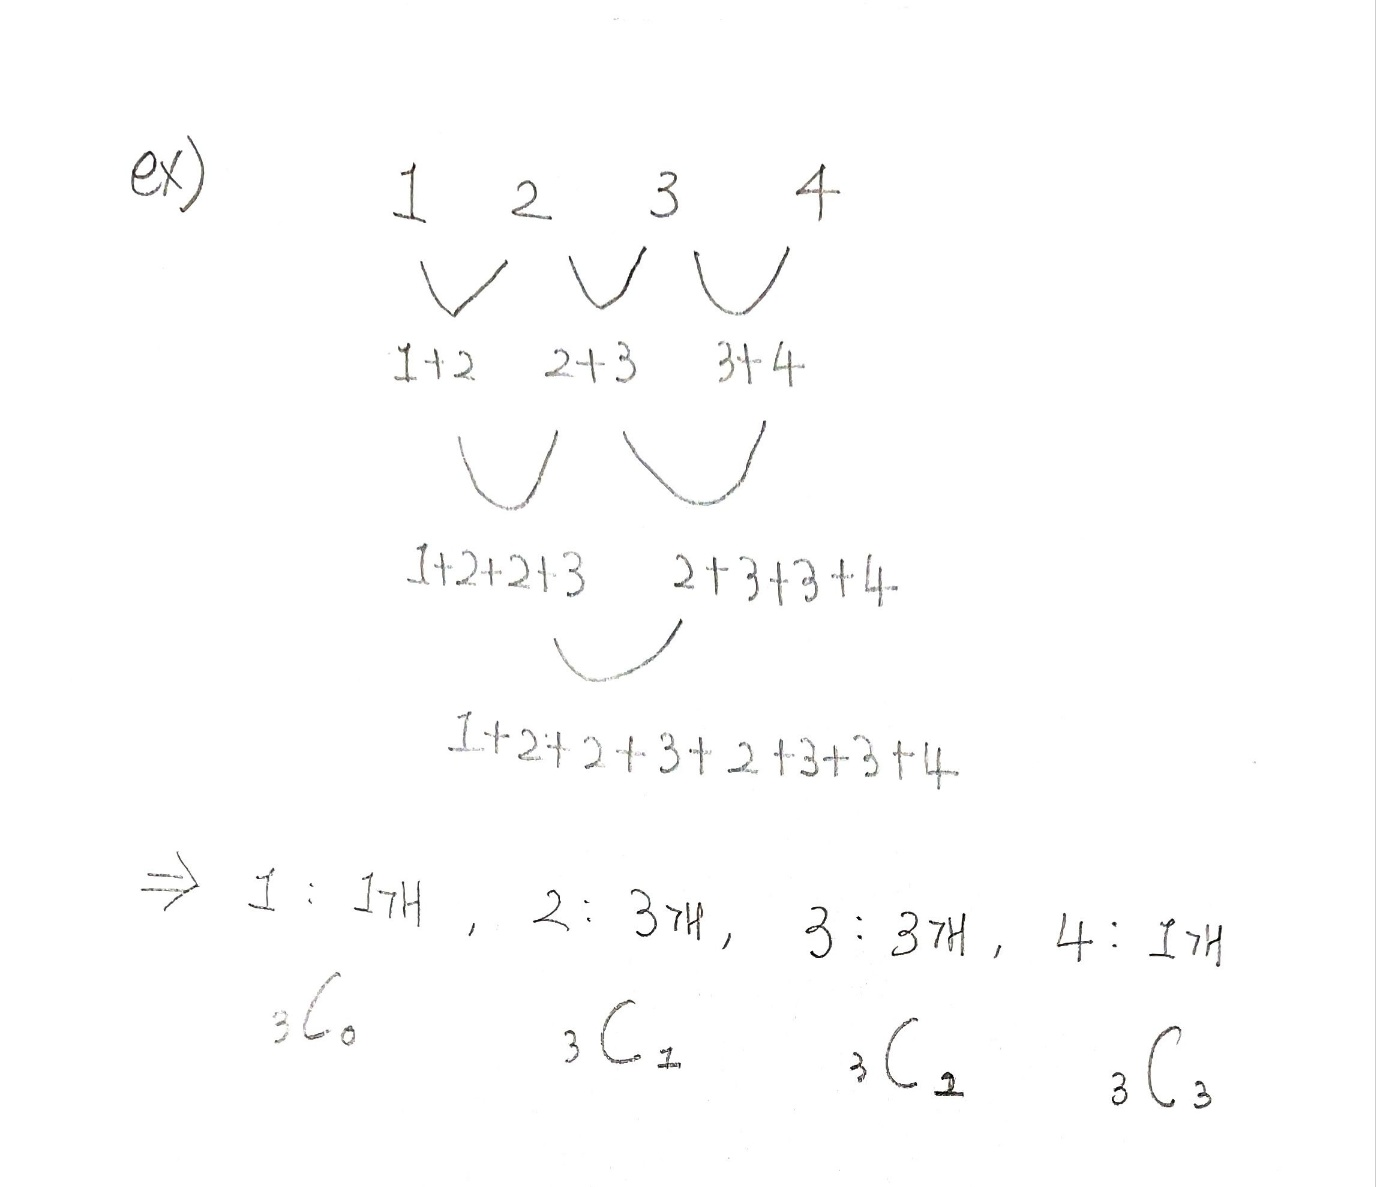 ex) 1 2 3 4
1+2 2+3 3+4
1+2+2+3 2+3+3+4
1+2+2+3+2+3+3+4
⇒ 1 : 1개 , 2 : 3개 , 3 : 3개 , 4 : 1개
₃C₀ ₃C₁ ₃C₂ ₃C₃